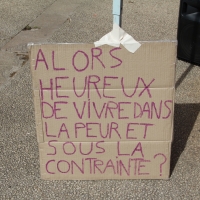 ALORS
HEUREUX
DE VIVRE DANS
LA PEUR ET
SOUS LA
CONTRAINTE?